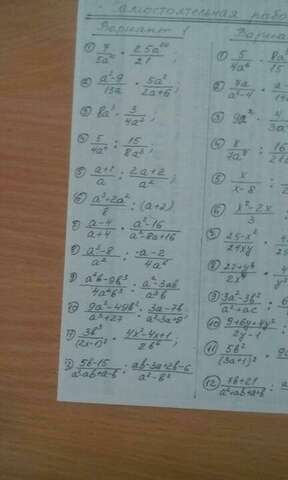 Самостоятельная рабо
Вариант 1
① 7/5a¹⁰ · 25a²⁰/21 ;
② a²-9/15a · 5a²/2a+6 ;
③ 8a³ · 3/4a² ;
④ 5/4a⁶ : 15/8a³ ;
⑤ a+1/a : 2a+2/a² ;
⑥ a³+2a²/8 : (a+2)
⑦ a-4/a+4 · a²-16/a²-8a+16
⑧ a³-8/a² : a-2/4a⁶
⑨ a⁴b-9b³/4a⁶b³ : a²-3ab/a³b
⑩ 9a²-49b²/a³+27 : 3a-7b/a²-3a+9 ;
⑪ 3b³/(2x-1)² · 4x²-4x+1/2b⁶ ;
⑫ 5b-15/a²-ab+a-b : ab-3a+2b-6/a²-b²
Вариа
① 5/4a⁶ · 8a³/15
② 7a²/a²-4 ·
③ 9a²
④ 16
⑤ x/x-8 :
⑥ x²-2x/3 :
25-x²/24xy
27+y³
3a²-3b²/a²+ac : 6
⑩ 2y-1
⑪ 5b²/(3a+1)² · 9a
12 7b+21/a²+ab+a+b :